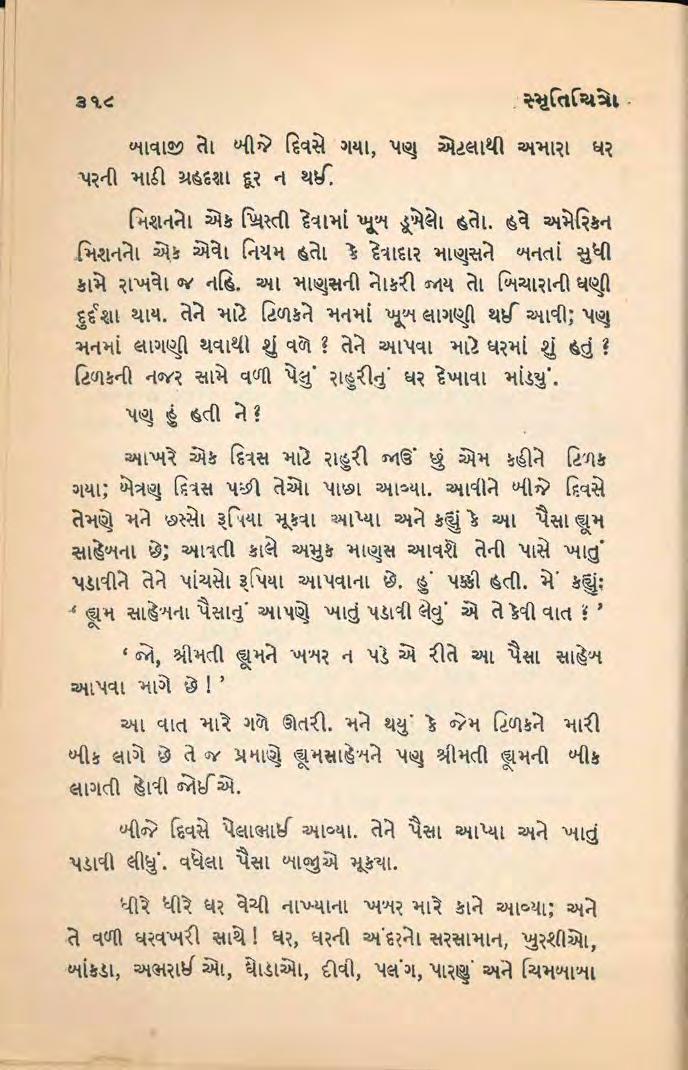 ૩૧૮ સ્મૃતિચિત્રો
બાવાજી તો બીજે દિવસે ગયા, પણ એટલાથી અમારા ઘર
પરની માઠી ગ્રહદશા દૂર ન થઈ.
મિશનનો એક ખ્રિસ્તી દેવામાં ખૂબ ડૂબેલો હતો. હવે અમેરિકન
મિશનનો એક એવો નિયમ હતો કે દેવાદાર માણસને બનતાં સુધી
કામે રાખવો જ નહિ. આ માણસની નોકરી જાય તો બિચારાની ઘણી
દુર્દશા થાય. તેને માટે ટિળકને મનમાં ખૂબ લાગણી થઈ આવી; પણ
મનમાં લાગણી થવાથી શું વળે ? તેને આપવા માટે ઘરમાં શું હતું ?
ટિળકની નજર સામે વળી પેલું રાહુરીનું ઘર દેખાવા માંડયું.
પણ હું હતી ને ?
આખરે એક દિવસ માટે રાહુરી જાઉં છું એમ કહીને ટિળક
ગયા; બેત્રણ દિવસ પછી તેઓ પાછા આવ્યા. આવીને બીજે દિવસે
તેમણે મને છસ્સો રૂપિયા મૂકવા આપ્યા અને કહ્યું કે આ પૈસા હ્યૂમ
સાહેબના છે; આવતી કાલે અમુક માણસ આવશે તેની પાસે ખાતું
પડાવીને તેને પાંચસો રૂપિયા આપવાના છે. હું પક્કી હતી. મેં કહ્યું:
‘ હ્યૂમ સાહેબના પૈસાનું આપણે ખાતું પડાવી લેવું એ તે કેવી વાત ? ’
‘ જો, શ્રીમતી હ્યૂમને ખબર ન પડે એ રીતે આ પૈસા સાહેબ
આપવા માગે છે ! ’
આ વાત મારે ગળે ઊતરી. મને થયું કે જેમ ટિળકને મારી
બીક લાગે છે તે જ પ્રમાણે હ્યૂમસાહેબને પણ શ્રીમતી હ્યૂમની બીક
લાગતી હોવી જોઈએ.
બીજે દિવસે પેલાભાઈ આવ્યા. તેને પૈસા આપ્યા અને ખાતું
પડાવી લીધું. વધેલા પૈસા બાજુએ મૂકયા.
ધીરે ધીરે ઘર વેચી નાખ્યાના ખબર મારે કાને આવ્યા; અને
તે વળી ઘરવખરી સાથે ! ઘર, ઘરની અંદરનો સરસામાન, ખુરશીઓ,
બાંકડા, અભરાઈઓ, ઘોડાઓ, દીવી, પલંગ, પારણું અને ચિમબાબા